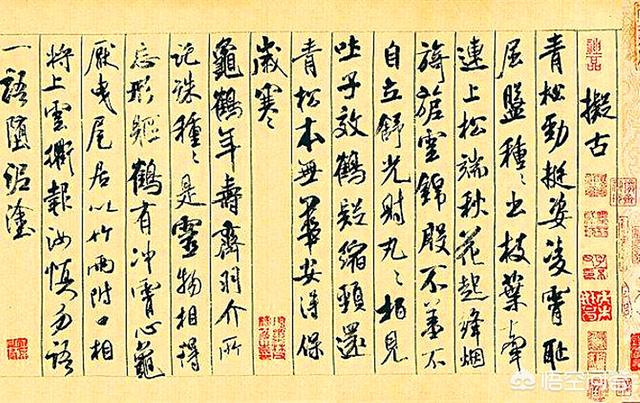 擬古
青松勁挺姿凌霄恥
屈盤種〻出枝葉牽
連上松端秋花起絳烟
旖旎雲錦殷不羞不
自立舒光射丸〻柏見
吐子效鶴疑縮頸還
青松本無華安得保
歲寒
龜鶴年壽齊羽介所
託殊種〻是靈物相得
忘形軀鶴有沖霄心龜
厭曳尾居以竹兩附口相
將上雲衢報汝慎勿語
一語墮泥塗
悟空问答